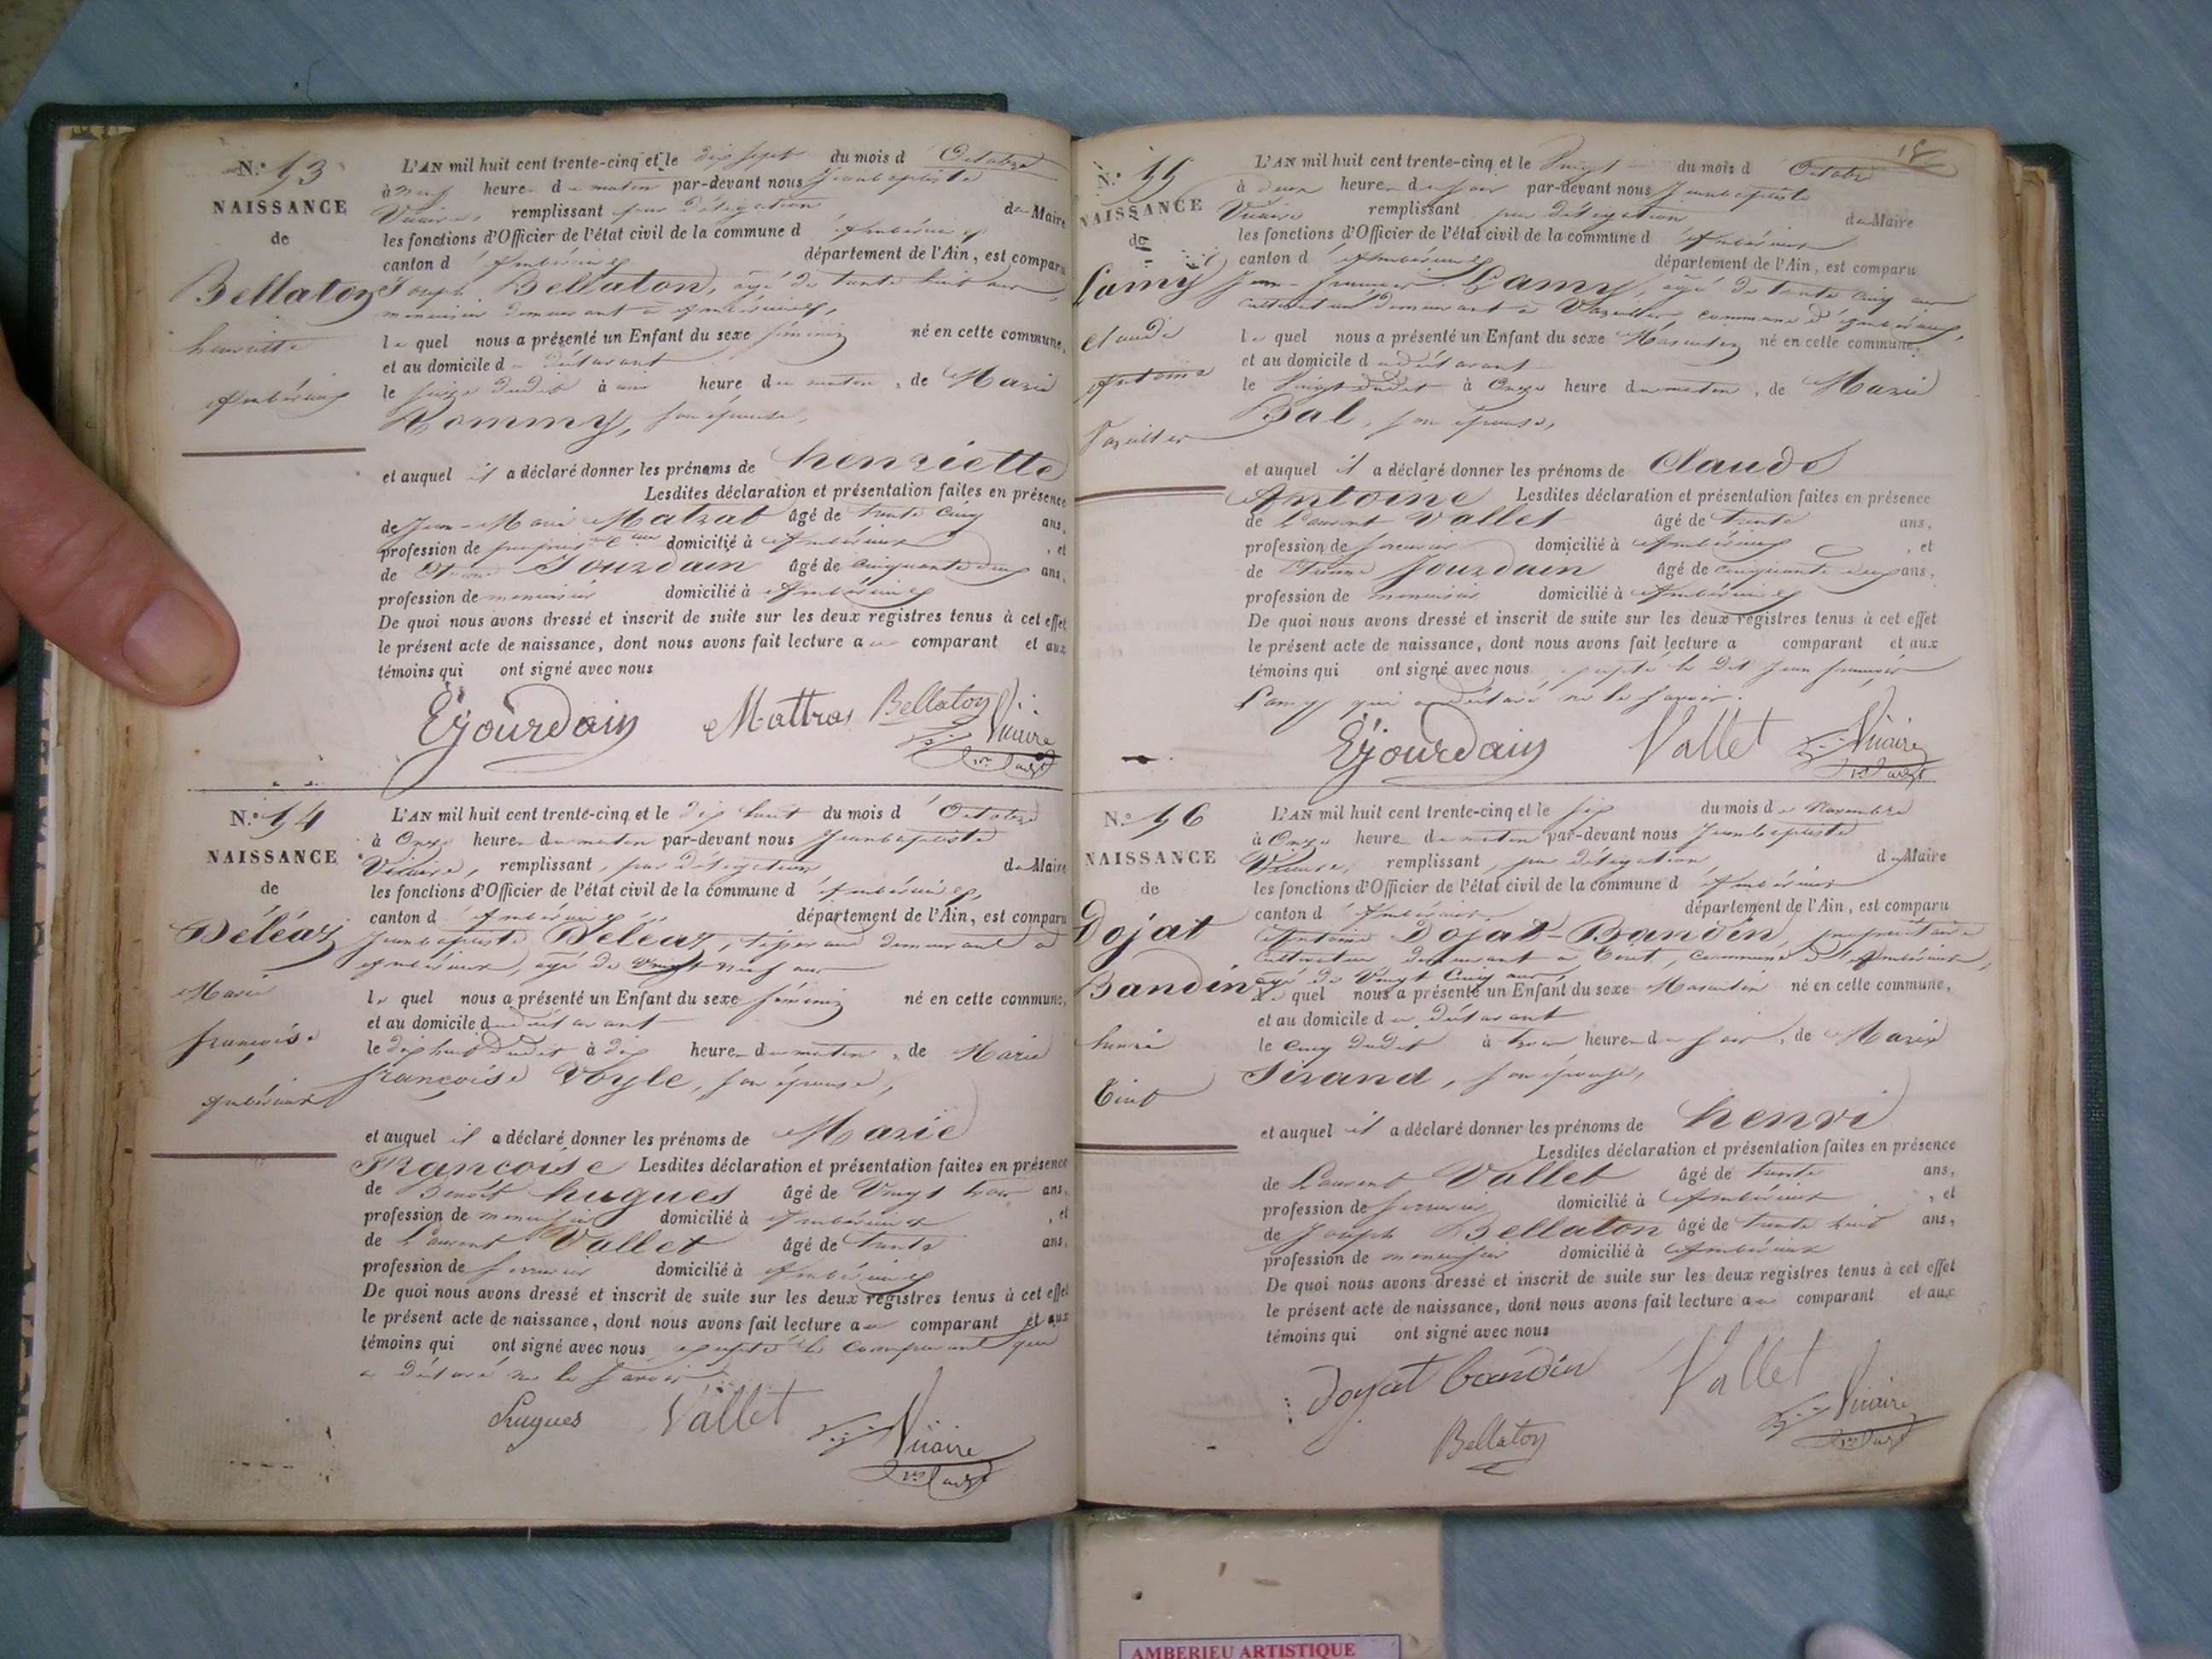 N.° 53
NAISSANCE
de
Bellaton
henriette
Ambérieux
L'AN mil huit cent trente-cinq et le dix sept du mois d'Octobre
à neuf heures du matin par-devant nous Jean baptiste
Vicaire, remplissant par délégation du Maire
les fonctions d'Officier de l'état civil de la commune d'Ambérieux
canton d'Ambérieux département de l'Ain, est comparu
Joseph Bellaton, âgé de trente huit ans,
menuisier demeurant à Ambérieux,
lequel nous a présenté un Enfant du sexe féminin né en cette commune,
et au domicile du déclarant
le seize dudit à une heure du matin, de Marie
Rommy, son épouse,
et auquel il a déclaré donner les prénoms de henriette
Lesdites déclaration et présentation faites en présence
de Jean-Marie Matrat âgé de trente cinq ans,
profession de domicilié à Ambérieux, et
de Etienne Jourdain âgé de cinquante deux ans,
profession de menuisier domicilié à Ambérieux
De quoi nous avons dressé et inscrit de suite sur les deux registres tenus à cet effet
le présent acte de naissance, dont nous avons fait lecture au comparant et aux
témoins qui ont signé avec nous
E Jourdain Mattras Bellaton Vicaire
N.° 54
NAISSANCE
de
Déléaz
Marie
françoise
Ambérieux
L'AN mil huit cent trente-cinq et le dix huit du mois d'Octobre
à Onze heures du matin par-devant nous Jean baptiste
Vicaire, remplissant, par délégation du Maire
les fonctions d'Officier de l'état civil de la commune d'Ambérieux,
canton d'Ambérieux département de l'Ain, est comparu
Jean baptiste Déléaz, tisserand demeurant à
Ambérieux, âgé de Vingt neuf ans
lequel nous a présenté un Enfant du sexe féminin né en cette commune,
et au domicile du déclarant
le dix huit dudit à dix heures du matin, de Marie
françoise Voyle, son épouse,
et auquel il a déclaré donner les prénoms de Marie
Françoise Lesdites déclaration et présentation faites en présence
de Benoît hugues âgé de Vingt trois ans,
profession de menuisier domicilié à Ambérieux, et
de Laurent Vallet âgé de trente ans,
profession de serrurier domicilié à Ambérieux
De quoi nous avons dressé et inscrit de suite sur les deux registres tenus à cet effet
le présent acte de naissance, dont nous avons fait lecture au comparant et aux
témoins qui ont signé avec nous excepté le comparant qui
a déclaré ne le savoir
hugues Vallet Vicaire
18
N.° 55
NAISSANCE
de
Lamy
claude
Antoine
Vareilles
L'AN mil huit cent trente-cinq et le Vingt du mois d'Octobre
à deux heures du soir par-devant nous Jean baptiste
Vicaire remplissant par délégation du Maire
les fonctions d'Officier de l'état civil de la commune d'Ambérieux
canton d'Ambérieux département de l'Ain, est comparu
Jean-françois Lamy, âgé de trente cinq ans
cultivateur demeurant à Vareilles, commune d'Ambérieux,
lequel nous a présenté un Enfant du sexe Masculin né en cette commune,
et au domicile du déclarant
le Vingt dudit à Onze heure du matin, de Marie
Bal, son épouse,
et auquel il a déclaré donner les prénoms de Claude
Antoine Lesdites déclaration et présentation faites en présence
de Laurent Vallet âgé de trente ans,
profession de serrurier domicilié à Ambérieux, et
de Etienne Jourdain âgé de cinquante deux ans,
profession de menuisier domicilié à Ambérieux
De quoi nous avons dressé et inscrit de suite sur les deux registres tenus à cet effet
le présent acte de naissance, dont nous avons fait lecture a comparant et aux
témoins qui ont signé avec nous, excepté le dit Jean françois
Lamy qui a déclaré ne le savoir.
E Jourdain Vallet Vicaire
N.° 56
NAISSANCE
de
Dojat
Bandin
henri
Tiret
L'AN mil huit cent trente-cinq et le six du mois de Novembre
à Onze heures du matin par-devant nous Jean baptiste
Vicaire, remplissant, par délégation du Maire
les fonctions d'Officier de l'état civil de la commune d'Ambérieux
canton d'Ambérieux département de l'Ain, est comparu
Antoine Dojat-Bandin, propriétaire
cultivateur demeurant à Tiret, commune d'Ambérieux,
âgé de Vingt Cinq ans,
lequel nous a présenté un Enfant du sexe Masculin né en cette commune,
et au domicile du déclarant
le cinq dudit à trois heures du soir, de Marie
Sirand, son épouse,
et auquel il a déclaré donner les prénoms de henri
Lesdites déclaration et présentation faites en présence
de Laurent Vallet âgé de trente ans,
profession de serrurier domicilié à Ambérieux, et
de Joseph Bellaton âgé de trente huit ans,
profession de menuisier domicilié à Ambérieux
De quoi nous avons dressé et inscrit de suite sur les deux registres tenus à cet effet
le présent acte de naissance, dont nous avons fait lecture au comparant et aux
témoins qui ont signé avec nous
Dojat bandin Vallet Vicaire
Bellaton
AMBERIEU ARTISTIQUE